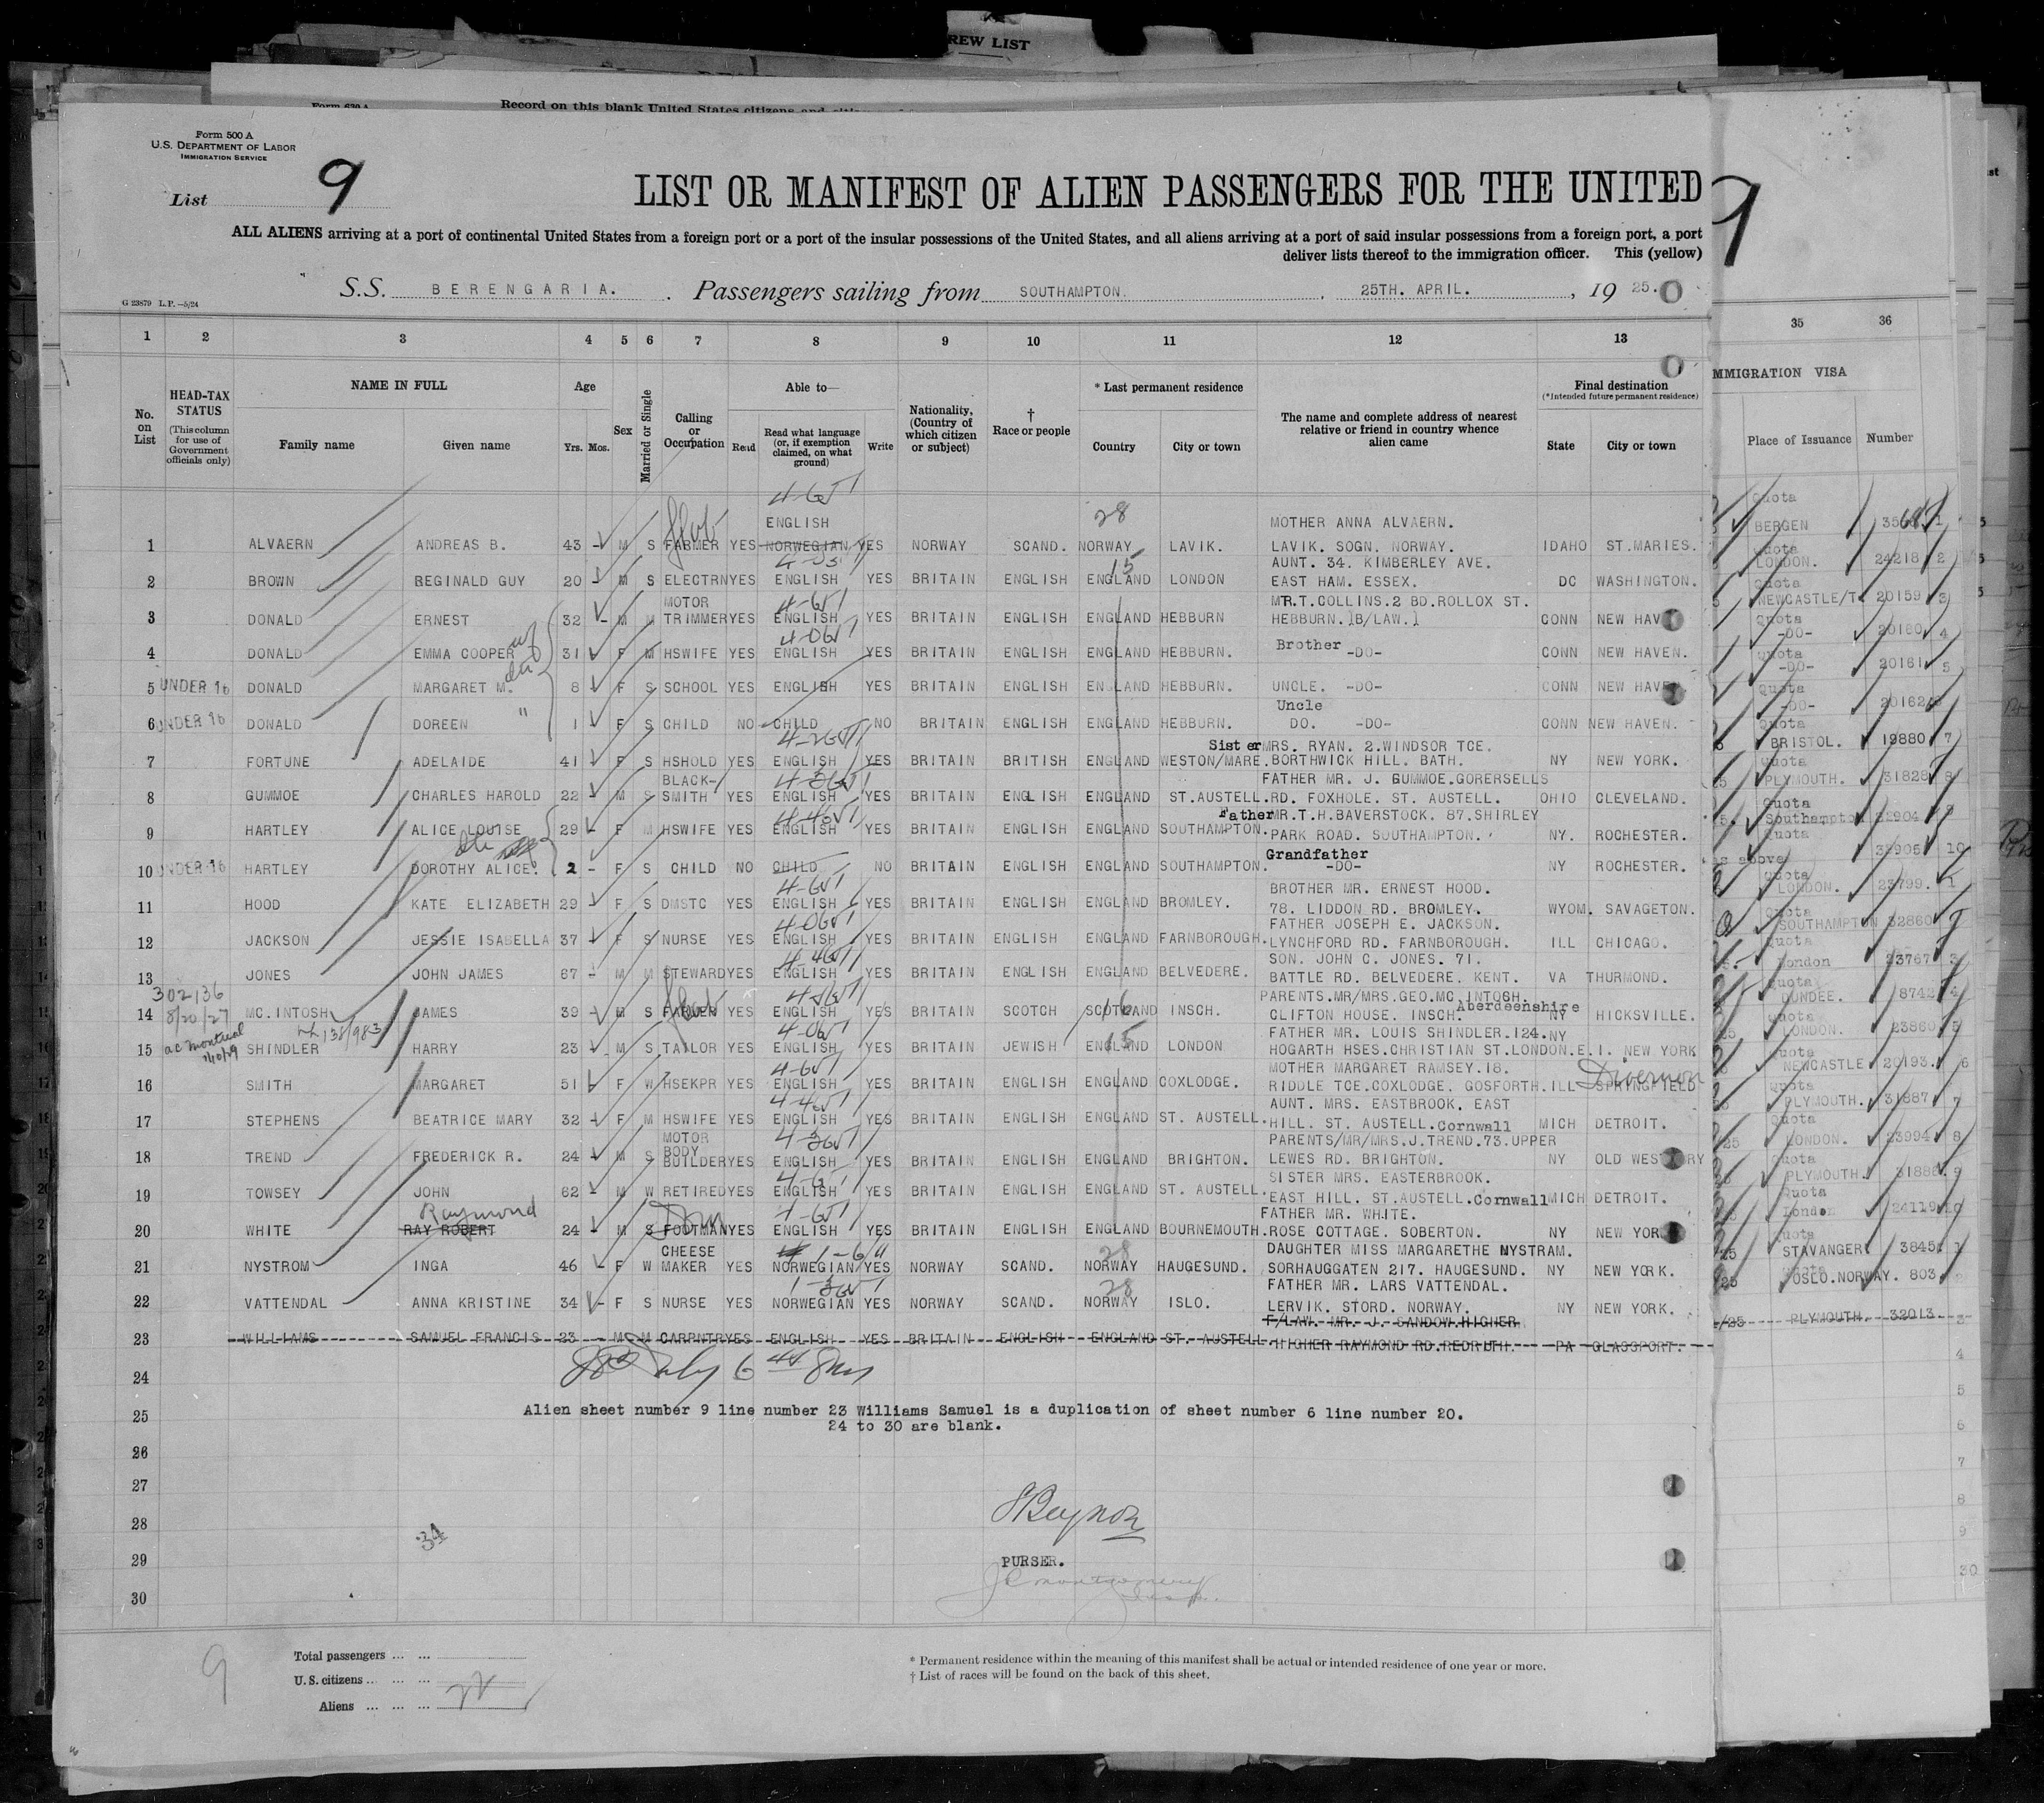 REW LIST
Form 630 A
Record on this blank United States citizens and
Form 500 A
U.S. DEPARTMENT OF LABOR
IMMIGRATION SERVICE
List 9
LIST OR MANIFEST OF ALIEN PASSENGERS FOR THE UNITED
9
ALL ALIENS arriving at a port of continental United States from a foreign port or a port of the insular possessions of the United States, and all aliens arriving at a port of said insular possessions from a foreign port, a port
deliver lists thereof to the immigration officer. This (yellow)
G 23879 L.P.—5/24
S.S. BERENGARIA. Passengers sailing from SOUTHAMPTON. 25TH. APRIL. , 19 25.
1 2 3 4 5 6 7 8 9 10 11 12 13 35 36
No. on List
HEAD-TAX STATUS (This column for use of Government officials only)
NAME IN FULL
Family name Given name
Age
Yrs. Mos.
Sex
Married or Single
Calling or Occupation
Able to—
Read
Read what language (or, if exemption claimed, on what ground)
Write
Nationality, (Country of which citizen or subject)
† Race or people
* Last permanent residence
Country City or town
The name and complete address of nearest relative or friend in country whence alien came
Final destination
(*Intended future permanent residence)
State City or town
MMIGRATION VISA
Place of Issuance Number
ENGLISH MOTHER ANNA ALVAERN. Quota
1 ALVAERN ANDREAS B. 43 - M S FARMER YES NORWEGIAN YES NORWAY SCAND. NORWAY 28 LAVIK. LAVIK. SOGN. NORWAY. IDAHO ST.MARIES. BERGEN
AUNT. 34. KIMBERLEY AVE. Quota
2 BROWN REGINALD GUY 20 - M S ELECTRN YES ENGLISH YES BRITAIN ENGLISH ENGLAND 15 LONDON EAST HAM. ESSEX. DC WASHINGTON. LONDON. 24218 2
MOTOR MR.T.COLLINS.2 BD.ROLLOX ST. Quota
3 DONALD ERNEST 32 - M M TRIMMER YES ENGLISH YES BRITAIN ENGLISH ENGLAND HEBBURN HEBBURN. (B/LAW.) CONN NEW HAV NEWCASTLE/T 20159 3
Brother Quota
4 DONALD EMMA COOPER wf 31 F M HSWIFE YES ENGLISH YES BRITAIN ENGLISH ENGLAND HEBBURN. -DO- CONN NEW HAVEN. -DO- 20160 4
Quota
5 UNDER 16 DONALD MARGARET M. 8 F S SCHOOL YES ENGLISH YES BRITAIN ENGLISH ENGLAND HEBBURN. UNCLE. -DO- CONN NEW HAV -DO- 20161 5
Uncle Quota
6 UNDER 16 DONALD DOREEN " 1 F S CHILD NO CHILD NO BRITAIN ENGLISH ENGLAND HEBBURN. DO. -DO- CONN NEW HAVEN. -DO- 20162
Sister MRS. RYAN. 2.WINDSOR TCE. Quota
7 FORTUNE ADELAIDE 41 F S HSHOLD YES ENGLISH YES BRITAIN BRITISH ENGLAND WESTON/MARE. BORTHWICK HILL. BATH. NY NEW YORK. BRISTOL. 19880 7
BLACK- FATHER MR. J. GUMMOE.GORERSELLS Quota
8 GUMMOE CHARLES HAROLD 22 - M S SMITH YES ENGLISH YES BRITAIN ENGLISH ENGLAND ST.AUSTELL. RD. FOXHOLE. ST. AUSTELL. OHIO CLEVELAND. PLYMOUTH. 31828 8
Father MR.T.H.BAVERSTOCK. 87.SHIRLEY Quota
9 HARTLEY ALICE LOUISE 29 - F M HSWIFE YES ENGLISH YES BRITAIN ENGLISH ENGLAND SOUTHAMPTON. PARK ROAD. SOUTHAMPTON. NY. ROCHESTER. Southampton 32904 9
Grandfather Quota
10 UNDER 16 HARTLEY DOROTHY ALICE. 2 - F S CHILD NO CHILD NO BRITAIN ENGLISH ENGLAND SOUTHAMPTON. -DO- NY ROCHESTER. as above 32905 10
BROTHER MR. ERNEST HOOD. Quota
11 HOOD KATE ELIZABETH 29 - F S DMSTC YES ENGLISH YES BRITAIN ENGLISH ENGLAND BROMLEY. 78. LIDDON RD. BROMLEY. WYOM. SAVAGETON. LONDON. 23799. 1
FATHER JOSEPH E. JACKSON. Quota
12 JACKSON JESSIE ISABELLA 37 - F S NURSE YES ENGLISH YES BRITAIN ENGLISH ENGLAND FARNBOROUGH. LYNCHFORD RD. FARNBOROUGH. ILL CHICAGO. SOUTHAMPTON 32860
SON. JOHN C. JONES. 71. Quota
13 JONES JOHN JAMES 67 - M M STEWARD YES ENGLISH YES BRITAIN ENGLISH ENGLAND BELVEDERE. BATTLE RD. BELVEDERE. KENT. VA THURMOND. London 23767 3
302136 8/20/27 PARENTS.MR/MRS.GEO.MC INTOSH. Aberdeenshire Quota
14 MC.INTOSH JAMES 39 - M S FARMER YES ENGLISH YES BRITAIN SCOTCH SCOTLAND 16 INSCH. CLIFTON HOUSE. INSCH. NY HICKSVILLE. DUNDEE. 8742 4
ac montreal FATHER MR. LOUIS SHINDLER.124. NY Quota
15 SHINDLER HARRY 23 - M S TAILOR YES ENGLISH YES BRITAIN JEWISH ENGLAND 15 LONDON HOGARTH HSES.CHRISTIAN ST.LONDON.E.I. NEW YORK LONDON. 23860 5
MOTHER MARGARET RAMSEY.18. Divernon Quota
16 SMITH MARGARET 51 F W HSEKPR YES ENGLISH YES BRITAIN ENGLISH ENGLAND COXLODGE. RIDDLE TCE.COXLODGE. GOSFORTH. ILL SPRINGFIELD NEWCASTLE 20193. 6
AUNT. MRS. EASTBROOK. EAST Quota
17 STEPHENS BEATRICE MARY 32 - F M HSWIFE YES ENGLISH YES BRITAIN ENGLISH ENGLAND ST. AUSTELL. HILL. ST. AUSTELL. Cornwall MICH DETROIT. PLYMOUTH. 31887 7
MOTOR BODY PARENTS/MR/MRS.J.TREND.73.UPPER Quota
18 TREND FREDERICK R. 24 - M S BUILDER YES ENGLISH YES BRITAIN ENGLISH ENGLAND BRIGHTON. LEWES RD. BRIGHTON. NY OLD WEST RY LONDON. 23994 8
SISTER MRS. EASTERBROOK. Quota
19 TOWSEY JOHN 62 - M W RETIRED YES ENGLISH YES BRITAIN ENGLISH ENGLAND ST. AUSTELL. EAST HILL. ST.AUSTELL. Cornwall MICH DETROIT. PLYMOUTH. 31886 9
Raymond FATHER MR. WHITE. Quota
20 WHITE RAY ROBERT 24 - M S FOOTMAN YES ENGLISH YES BRITAIN ENGLISH ENGLAND BOURNEMOUTH. ROSE COTTAGE. SOBERTON. NY NEW YOR London 24119 10
CHEESE DAUGHTER MISS MARGARETHE NYSTRAM. Quota
21 NYSTROM INGA 46 - F W MAKER YES NORWEGIAN YES NORWAY SCAND. NORWAY 28 HAUGESUND. SORHAUGGATEN 217. HAUGESUND. NY NEW YORK. STAVANGER 3845 1
FATHER MR. LARS VATTENDAL. Quota
22 VATTENDAL ANNA KRISTINE 34 - F S NURSE YES NORWEGIAN YES NORWAY SCAND. NORWAY 28 ISLO. LERVIK. STORD. NORWAY. NY NEW YORK. OSLO.NORWAY. 803
F/LAW. MR. J. SANDOW.HIGHER
23 WILLIAMS SAMUEL FRANCIS 23 - M M CARPNTR YES ENGLISH YES BRITAIN ENGLISH ENGLAND ST. AUSTELL. HIGHER RAYMOND RD.REDRUTH. PA GLASSPORT. PLYMOUTH. 32013 3
24 4
25 Alien sheet number 9 line number 23 Williams Samuel is a duplication of sheet number 6 line number 20. 5
24 to 30 are blank. 6
26
27 7
28 8
34
29 PURSER. 9
30 30
Total passengers ... ...
U.S. citizens ... ... ...
Aliens ... ... ... 22
9
* Permanent residence within the meaning of this manifest shall be actual or intended residence of one year or more.
† List of races will be found on the back of this sheet.